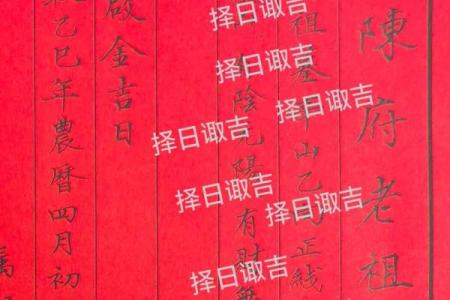 陳府老祖
祖墓山乙正綫
陰光陽有財
啟金吉日
乙巳年農曆四月初
择日诹吉
择日诹吉
择日诹吉
择日诹吉
择日诹吉
择日诹吉
择日诹吉